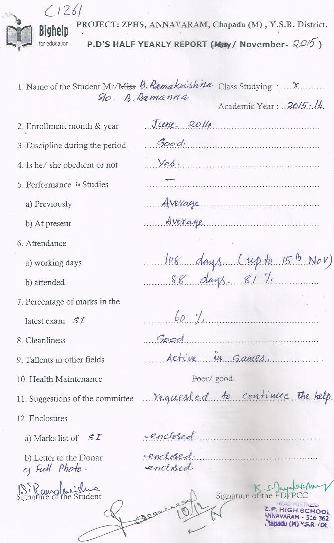 C1261
Bighelp
for education
PROJECT: ZPHS, ANNAVARAM, Chapadu (M), Y.S.R. District.
P.D'S HALF YEARLY REPORT (May/ November- 2015)
1. Name of the Student Mr/Miss B. Ramakrishna Class Studying : X
S/o B. Ramanna
Academic Year : 2015-16
2. Enrollment month & year June 2014
3. Discipline during the period Good
4. Is he/ she obedient or not Yes
5. Performance in Studies —
a) Previously Average
b) At present Average
6. Attendance
a) working days 108 days (up to 15th Nov)
b) attended 88 days. 81 %
7. Percentage of marks in the
latest exam SI 60 %
8. Cleanliness Good
9. Tallents in other fields Active in Games.
10. Health Maintenance Poor/ good.
11. Suggestions of the committee requested to continue the help.
12. Enclosures
a) Marks list of SI enclosed
b) Letter to the Donor enclosed
c) Full Photo. enclosed
B. Ramakrishna
Signature of the Student
Signature of the
Z.P. HIGH SCHOOL
ANNAVARAM - 516 362
Chapadu (M) Y.S.R. (Dt.